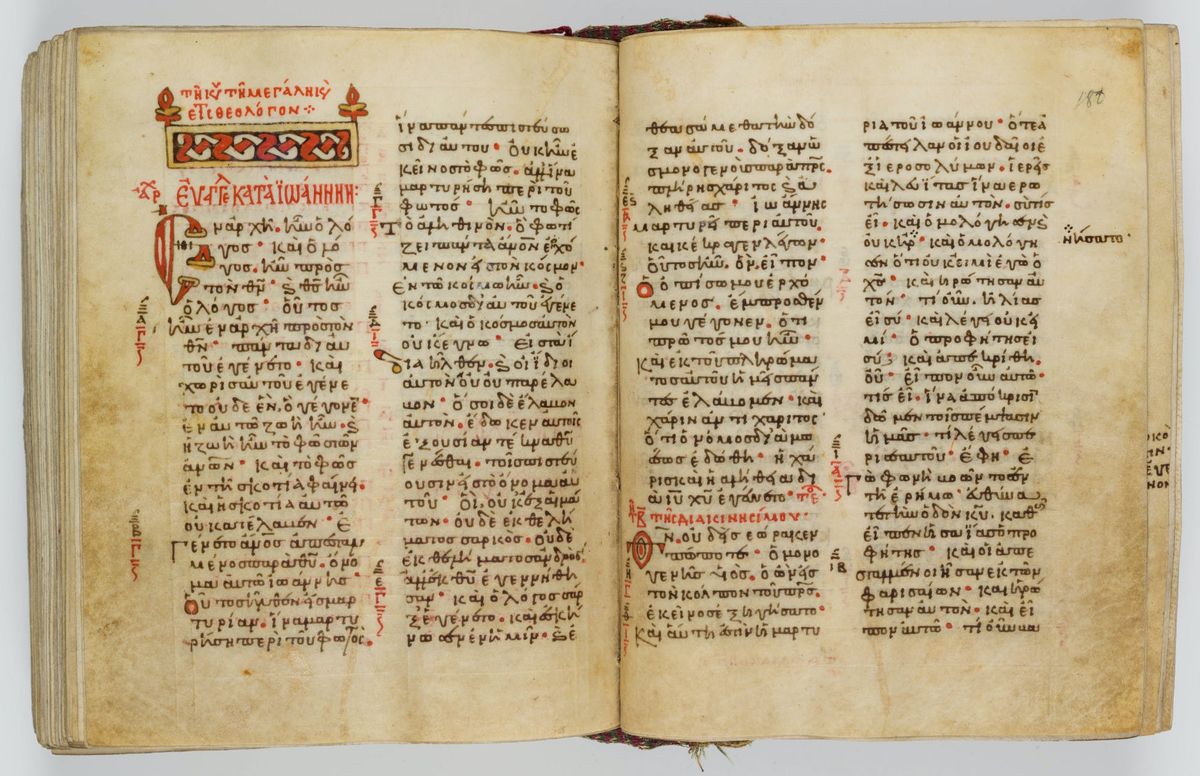 τῇ κυ τῇ μεγάλῃ κυ
ἐτι θεολόγον
εὐαγγε κατὰ ϊωάννην:
Ἐν ἀρχῆ ἦν ὁ λό
γος· καὶ ὁ λό
γος ἦν προσ
τὸν θν· καὶ θς ἦν
ὁ λόγος· οὗτος
ἦν ἐν ἀρχῆ πρὸς τὸν
θν· πάντα δι αυ
τοῦ ἐγένετο· καὶ
χωρὶς αὐτοῦ ἐγένε
το οὐδε ἕν, ὃ γέγονεν·
ἐν αὐτῶ ζωὴ ἦν· καὶ
ἡ ζωὴ ἦν τὸ φῶς τῶν
ἀνων· καὶ τὸ φῶς
ἐν τῆ σκοτία φαίνει·
καὶ ἡ σκοτία αὐτὸ
οὐ κατέλαβεν· Ἐ
γένετο ἄνος ἀπεσταλ
μένος παρὰ θυ· ὄνο
μα αὐτῶ ϊωάννης·
Οὗτος ἦλθεν εἰς μαρ
τυρίαν· ἵνα μαρτυ
ρήση περὶ τοῦ φωτός·
ἵνα πάντες πιστεύσω
σι δι αὐτοῦ· οὐκ ἦν ἐ
κεῖνος τὸ φῶς· ἀλλ ἵνα
μαρτυρήση περὶ τοῦ
φωτός· ἦν τὸ φῶς
Τὸ ἀληθινὸν· ὃ φωτί
ζει πάντα ἄνον ἐρχό
μενον εἰς τὸν κόσμον·
Ἐν τῶ κόσμω ἦν· καὶ ὁ
κόσμος δι αὐτοῦ ἐγένε
το· καὶ ὁ κόσμος αὐτὸν
οὐκ ἔγνω· Εἰς τὰ ἴ
δια ἦλθεν· καὶ οἱ ἴδιοι
αὐτὸν οὐ παρέλα
βον· ὅσοι δὲ ἔλαβον
αὐτὸν· ἔδωκεν αὐτοῖς
ἐξουσίαν τέκνα θυ
γενέσθαι· τοῖς πιστεύ
ουσιν εἰς τὸ ὄνομα αὐ
τοῦ· οἳ, οὐκ ἐξ αἱμά
των· οὐδὲ ἐκ θελή
ματος σαρκὸς· οὐδὲ
ἐκ θελήματος ἀνδρὸς·
ἀλλ ἐκ θυ ἐγεννήθη
σαν· καὶ ὁ λόγος σὰρ
ξ ἐγένετο· καὶ ἐσκή
νωσεν ἐν ἡμῖν· καὶ ἐ
180
θεασάμεθα τὴν δό
ξαν αὐτοῦ· δόξαν ὡ
ς μονογενοῦς παρὰ πρς·
πλήρης χάριτος καὶ ἀ
ληθείας· ϊωάννης
Μαρτυρεῖ περὶ αὐτοῦ.
καὶ κέκραγεν λέγων·
οὗτος ἦν. ὃν εἶπον·
Ὁ ὀπίσω μου ἐρχό
μενος. ἔμπροσθέν
μου γέγονεν· ὅτι
πρῶτός μου ἦν·
Καὶ ἐκ τοῦ πληρώμα
τος αὐτοῦ ἡμεῖς πάν
τες ἐλάβομεν· καὶ
χάριν ἀντὶ χάριτος·
ὅτι ὁ νόμος δι αμω
σέως ἐδόθη· ἡ χά
ρις καὶ ἡ ἀλήθεια δι
α ιυ χυ ἐγένετο· τε
τῆς διακινησίμου·
Θν. οὐδεὶς ἑώρακεν
πώποτε· ὁ μονο
γενὴς υἱὸς· ὁ ὢν εἰς
τὸν κόλπον τοῦ πρς·
ἐκεῖνος ἐξηγήσατο·
Καὶ αὕτη ἐστὶν ἡ μαρτυ
ρία τοῦ ϊωάννου· ὅτε ἀ
πέστειλαν οἱ ϊουδαῖοι ἐ
ξ ϊεροσολύμων· ϊερεῖς
καὶ λευίτας ἵνα ἐρω
τήσωσιν αὐτὸν· σὺ τίς
εἶ· καὶ ὡμολόγησεν καὶ
οὐκ ἠρ· καὶ ὡμολόγη
σεν ὅτι οὐκ εἰμὶ ἐγὼ ὁ
χς· καὶ ἠρώτησαν αὐ
τὸν· τί οὖν· ἡλίας
εἶ σύ· καὶ λέγει οὐκ εἰ
μί· ὁ προφήτης εἶ
σύ· καὶ ἀπεκρίθη·
οὔ· εἶπον οὖν αὐτῶ·
τίς εἶ· ἵνα ἀπόκρισι
δῶμεν τοῖς πέμψασιν
ἡμᾶς· τί λέγεις πε
ρὶ σεαυτοῦ· ἔφη· ἐ
γὼ φωνὴ βοῶντος ἐν
τῆ ἐρήμω· εὐθύνα
τε τὴν ὁδὸν κυ. καθὼς
εἶπεν ἡσαΐας ὁ προ
φήτης· καὶ οἱ ἀπε
σταλμένοι ἦσαν ἐκ τῶν
φαρισαίων· καὶ ἠρώ
τησαν αὐτὸν· καὶ εἶ
πον αὐτῶ· τί οὖν βα
νήσατο·